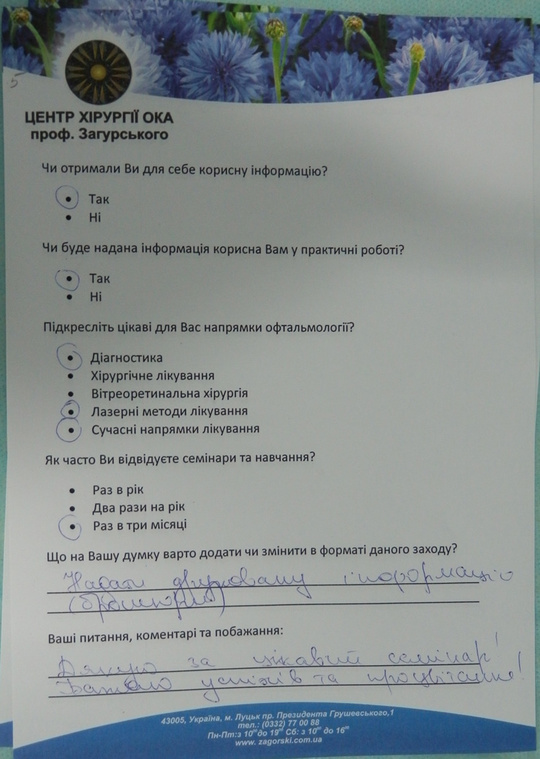 5
ЦЕНТР ХІРУРГІЇ ОКА
проф. Загурського
Чи отримали Ви для себе корисну інформацію?
• Так
• Ні
Чи буде надана інформація корисна Вам у практичні роботі?
• Так
• Ні
Підкресліть цікаві для Вас напрямки офтальмології?
• Діагностика
• Хірургічне лікування
• Вітреоретинальна хірургія
• Лазерні методи лікування
• Сучасні напрямки лікування
Як часто Ви відвідуєте семінари та навчання?
• Раз в рік
• Два рази на рік
• Раз в три місяці
Що на Вашу думку варто додати чи змінити в форматі даного заходу?
Надати друковану інформацію
(брошюри)
Ваші питання, коментарі та побажання:
Дякую за цікавий семінар!
Бажаю успіхів та процвітання!
43005, Україна, м. Луцьк пр. Президента Грушевського,1
тел.: (0332) 77 00 88
Пн-Пт:з 10⁰⁰до 19⁰⁰ Сб: з 10⁰⁰ до 16⁰⁰
www. zagorski.com.ua